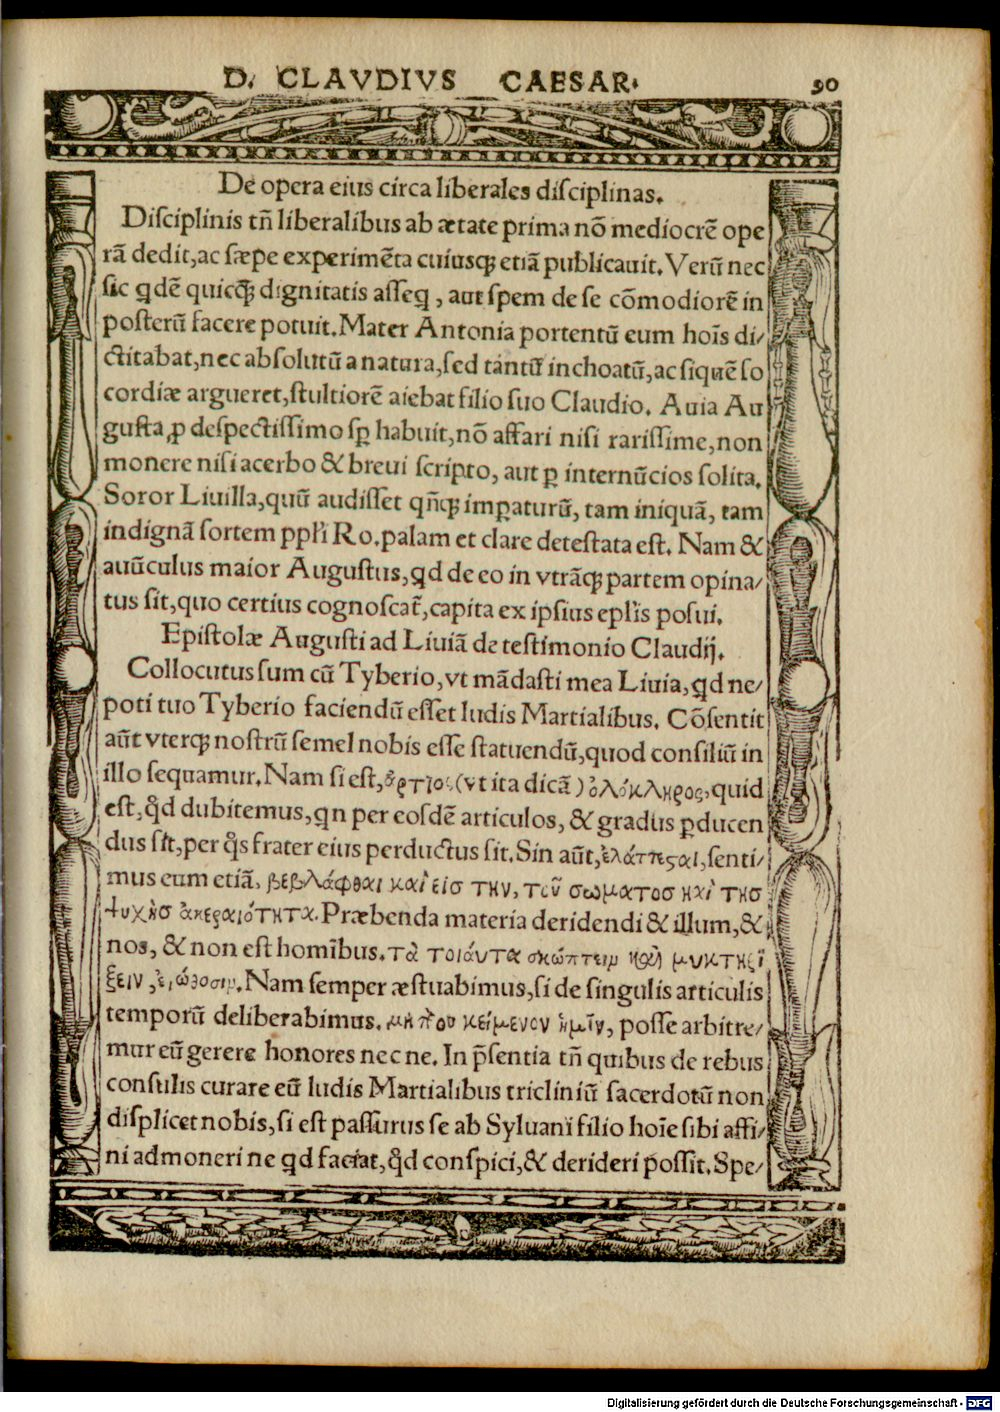 D. CLAVDIVS CAESAR. 90
De opera eius circa liberales disciplinas.
Disciplinis tñ liberalibus ab ætate prima nõ mediocrẽ ope
rã dedit, ac sæpe experimẽta cuiusq; etiã publicauit. Verũ nec
sic qdẽ quicq̃; dignitatis asseq, aut spem de se cõmodiorẽ in
posterũ facere potuit. Mater Antonia portentũ eum hoĩs di/
ctitabat, nec absolutũ a natura, sed tantũ inchoatũ, ac siquẽ so
cordiæ argueret, stultiorẽ aiebat filio suo Claudio. Auia Au
gusta ꝓ despectissimo sꝑ habuit, nõ affari nisi rarissime, non
monere nisi acerbo & breui scripto, aut ꝑ internũcios solita.
Soror Liuilla, quũ audisset qñq; imꝑaturũ, tam iniquã, tam
indignã sortem ppĺi Ro. palam et clare detestata est. Nam &
auũculus maior Augustus, qd de eo in vtrãq; partem opina/
tus sit, quo certius cognoscat̃, capita ex ipsius epĺis posui.
Epistolæ Augusti ad Liuiã de testimonio Claudij.
Collocutus sum cũ Tyberio, vt mãdasti mea Liuia, qd ne/
poti tuo Tyberio faciendũ esset ludis Martialibus. Cõsentit
aũt vterq; nostrũ semel nobis esse statuendũ, quod consiliũ in
illo sequamur. Nam si est, ἄρτιος (vt ita dicã) ὁλόκληρος, quid
est, q̃d dubitemus, qn per eosdẽ articulos, & gradus ꝑducen
dus sit, per q̃s frater eius perductus sit. Sin aũt, ἐλάττεσαι, senti/
mus eum etiã, βεβλάφθαι καὶ εἰσ την, τοῦ σωματοσ καὶ τησ
ψυχῆσ ἀκεραιότητα. Præbenda materia deridendi & illum, &
nos, & non est homĩbus. τὰ τοιάυτα σκώπτειν καὶ μυκτηρί
ξειν, ἐιώθοσιν. Nam semper æstuabimus, si de singulis articulis
temporũ deliberabimus. μὴ πρου κείμενον ἡμῖν, posse arbitre/
mur eũ gerere honores nec ne. In p̃sentia tñ quibus de rebus
consulis curare eũ ludis Martialibus tricliniũ sacerdotũ non
displicet nobis, si est passurus se ab Syluani filio hoĩe sibi affi/
ni admoneri ne qd faciat, q̃d conspici, & derideri possit. Spe/
Digitalisierung gefördert durch die Deutsche Forschungsgemeinschaft - DFG